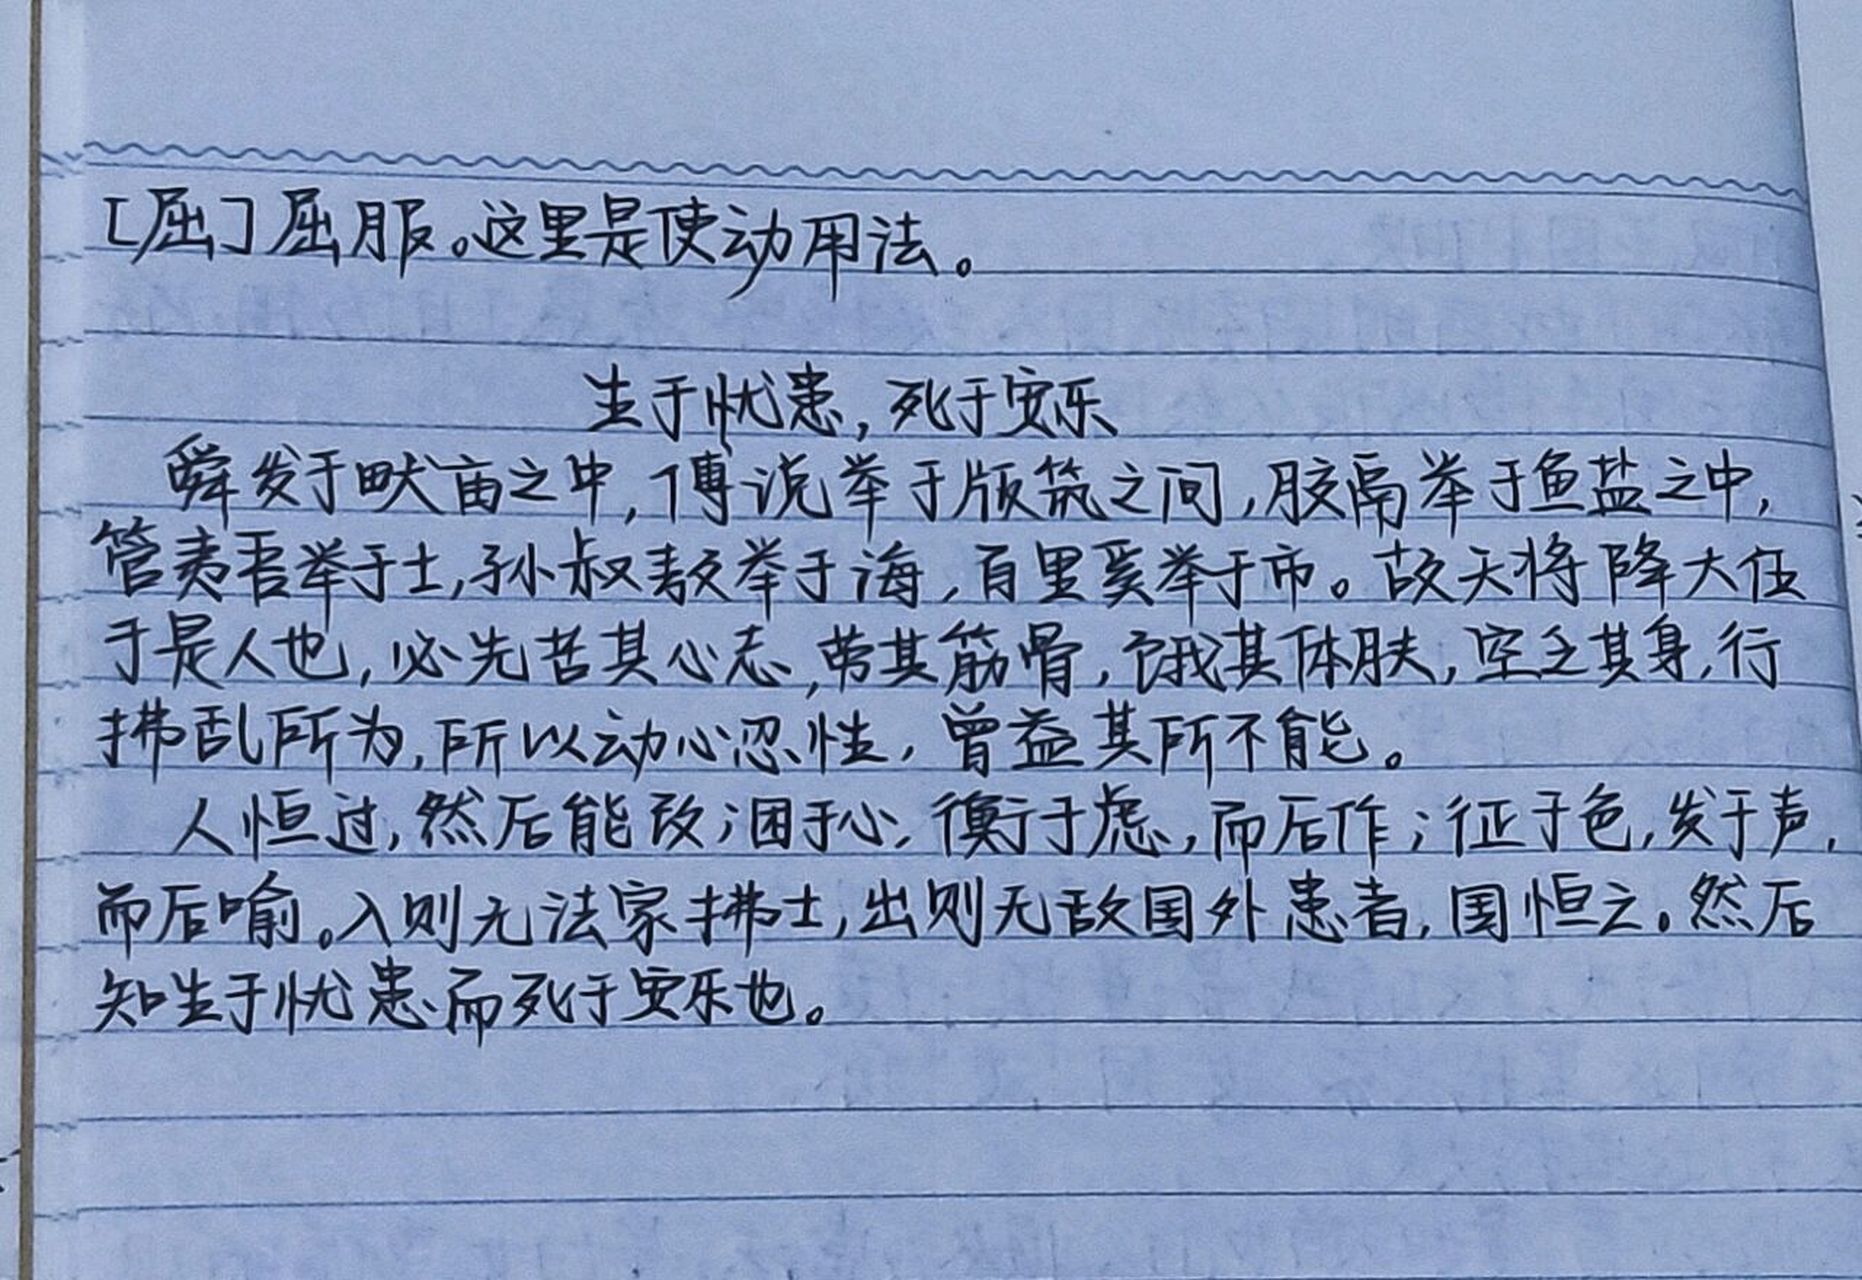 [屈]屈服。这里是使动用法。
生于忧患,死于安乐
舜发于畎亩之中,傅说举于版筑之间,胶鬲举于鱼盐之中,
管夷吾举于士,孙叔敖举于海,百里奚举于市。故天将降大任
于是人也,必先苦其心志,劳其筋骨,饿其体肤,空乏其身,行
拂乱所为,所以动心忍性,曾益其所不能。
人恒过,然后能改;困于心,衡于虑,而后作;征于色,发于声,
而后喻。入则无法家拂士,出则无敌国外患者,国恒之。然后
知生于忧患而死于安乐也。